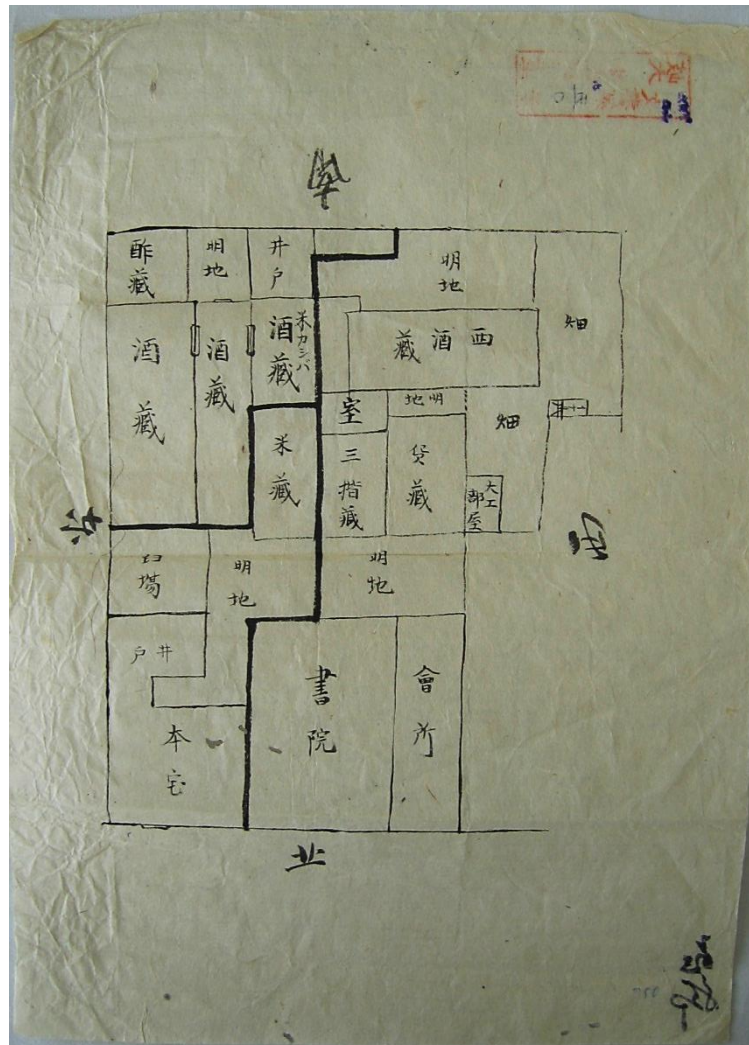 南
酢藏
明地
井戸
明地
畑
酒藏
酒藏
酒藏
米カシバ
西酒藏
室
明地
畑
井
米藏
三階藏
貸藏
大工部屋
東
西
臼場
明地
明地
井戸
本宅
書院
會所
北